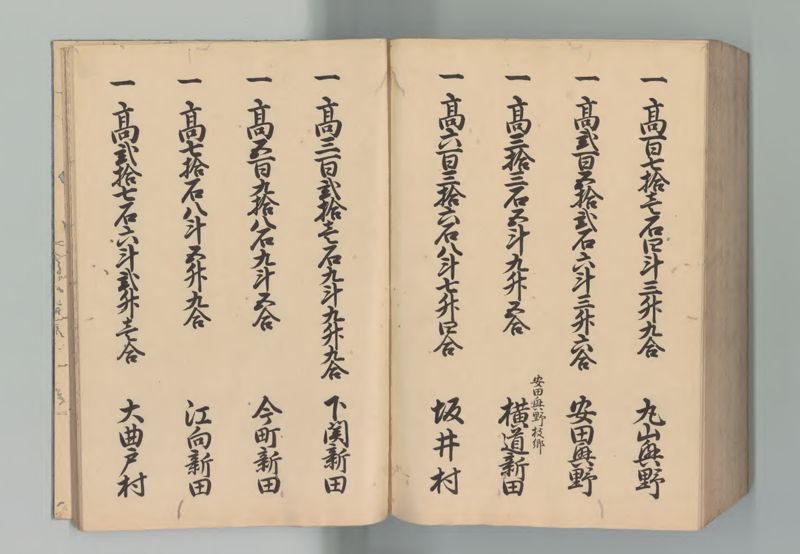 一 高百七拾壱石四斗三升九合 丸山興野
一 高弐百五拾弐石六斗三升六合 安田興野
安田興野枝郷
一 高三拾三石五斗九升五合 横道新田
一 高六百三拾六石八斗七升四合 坂井村
一 高三百弐拾壱石九斗九升九合 下関新田
一 高五百九拾八石九斗五合 今町新田
一 高七拾石八斗五升九合 江向新田
一 高弐拾七石六斗弐升壱合 大曲戸村